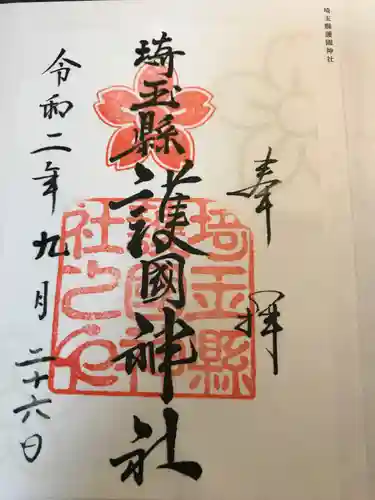 埼玉縣護國神社
奉拝
埼玉縣護國神社
埼玉縣
護國神
社之印
令和二年九月二十六日